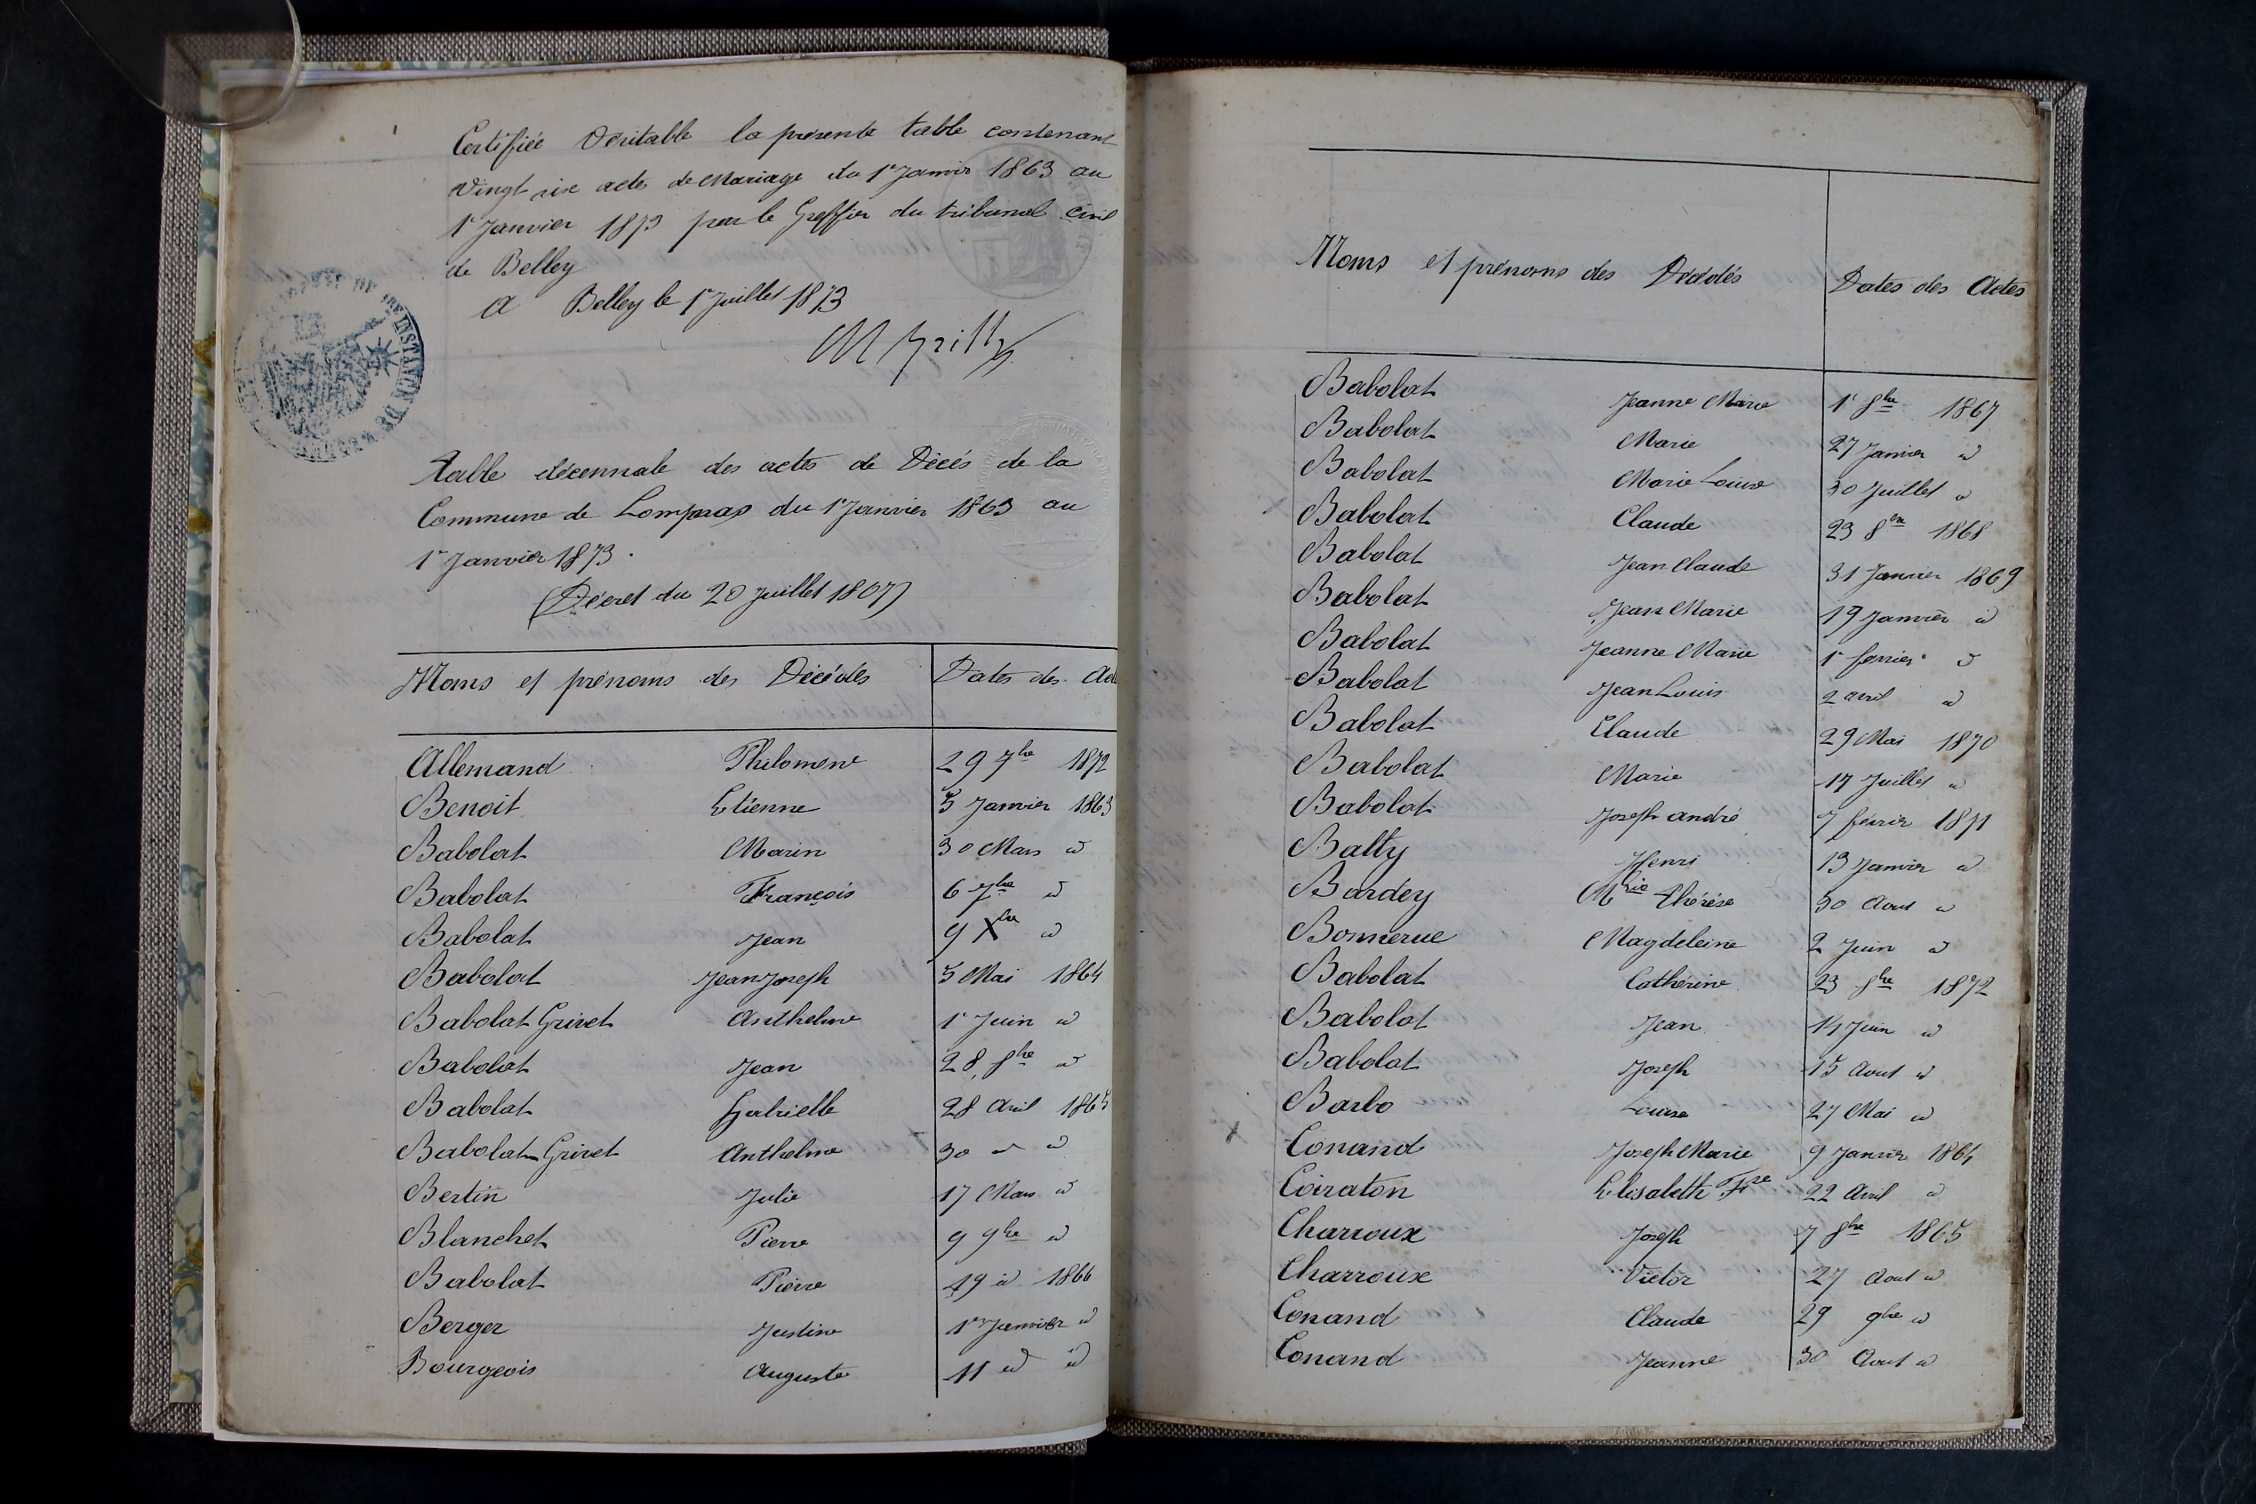 Certifiée Véritable la présente table contenant
Vingt six actes de Mariage du 1r Janvier 1863 au
1r Janvier 1873 par le Greffier du tribunal Civil
de Belley
A Belley le 1r Juillet 1873
Table décennale des actes de Décès de la
Commune de Lompnas du 1r Janvier 1863 au
1r Janvier 1873.
(Décret du 20 Juillet 1807)
Noms et prénoms des Décédés Dates des Act
Allemand Philomene 29 7bre 1872
Benoit Etienne 5 Janvier 1863
Babolat Marin 30 Mars id
Babolat François 6 7bre id
Babolat Jean 9 Xbre id
Babolat Jean Joseph 5 Mai 1864
Babolat Grivet Anthelme 1r Juin id
Babolat Jean 28 8bre id
Babolat Gabrielle 28 Avril 1865
Babolat Grivet Anthelme 30 id id
Bertin Julie 17 Mars id
Blanchet Pierre 9 9bre id
Babolat Pierre 19 id 1866
Berger Justine 1r Janvier id
Bourgeois Auguste 11 id id
Noms et prénoms des Décédés Dates des Actes
Babolat Jeanne Marie 1r 8bre 1867
Babolat Marie 27 Janvier id
Babolat Marie Louise 30 Juillet id
Babolat Claude 23 8bre 1868
Babolat Jean Claude 31 Janvier 1869
Babolat Jean Marie 19 Janvier id
Babolat Jeanne Marie 1r fevrier id
Babolat Jean Louis 2 avril id
Babolat Claude 29 Mai 1870
Babolat Marie 17 Juillet id
Babolat Joseph andré 7 février 1871
Batty Henri 13 Janvier id
Bardey Mrie thérèse 30 Aout id
Bonnerue Magdeleine 2 Juin id
Babolat Catherine 23 8bre 1872
Babolat Jean 14 Juin id
Babolat Joseph 15 Aout id
Barbo Louise 27 Mai id
Conand Joseph Marie 9 Janvier 1864
Coiraton Elisabeth Fse 22 Avril id
Charroux Joseph 7 8bre 1865
Charroux Victor 27 Aout id
Conand Claude 29 9bre id
Conand Jeanne 30 Aout id